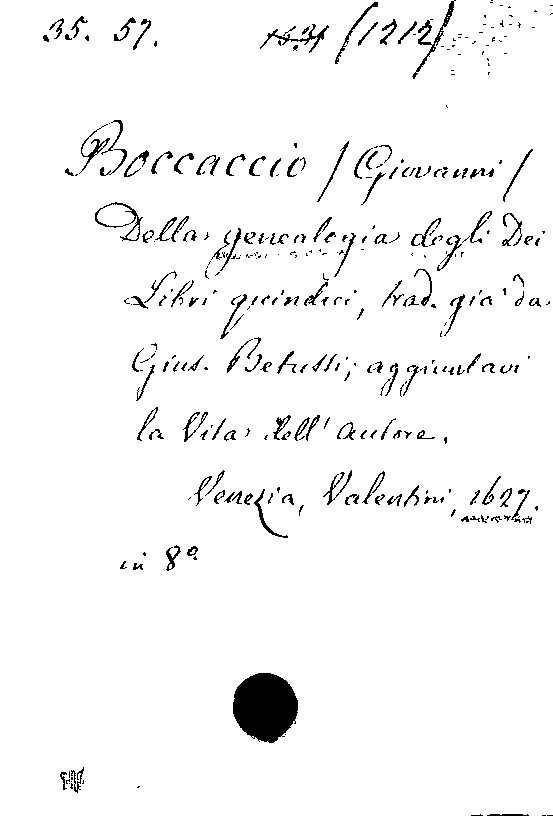 35. 57. (1212)
Boccaccio (Giovanni)
Della genealogia degli Dei
Libri quindici, trad. già da
Gius. Betussi; aggiuntavi
la Vita dell' autore.
Venezia, Valentini, 1627.
in 8º